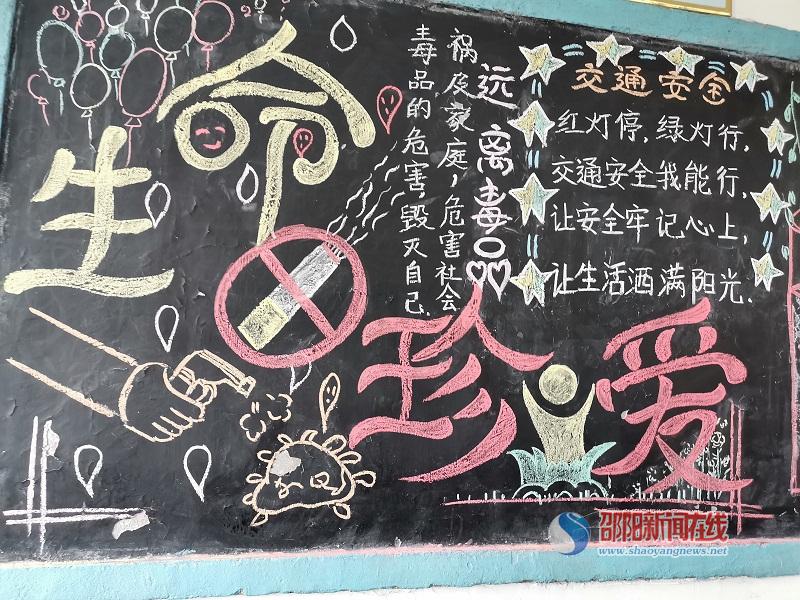 生命
珍爱
远离毒品
祸及家庭,危害社会
毒品的危害,毁灭自己.
交通安全
红灯停,绿灯行,
交通安全我能行,
让安全牢记心上,
让生活洒满阳光.
邵阳新闻在线
www.shaoyangnews.net